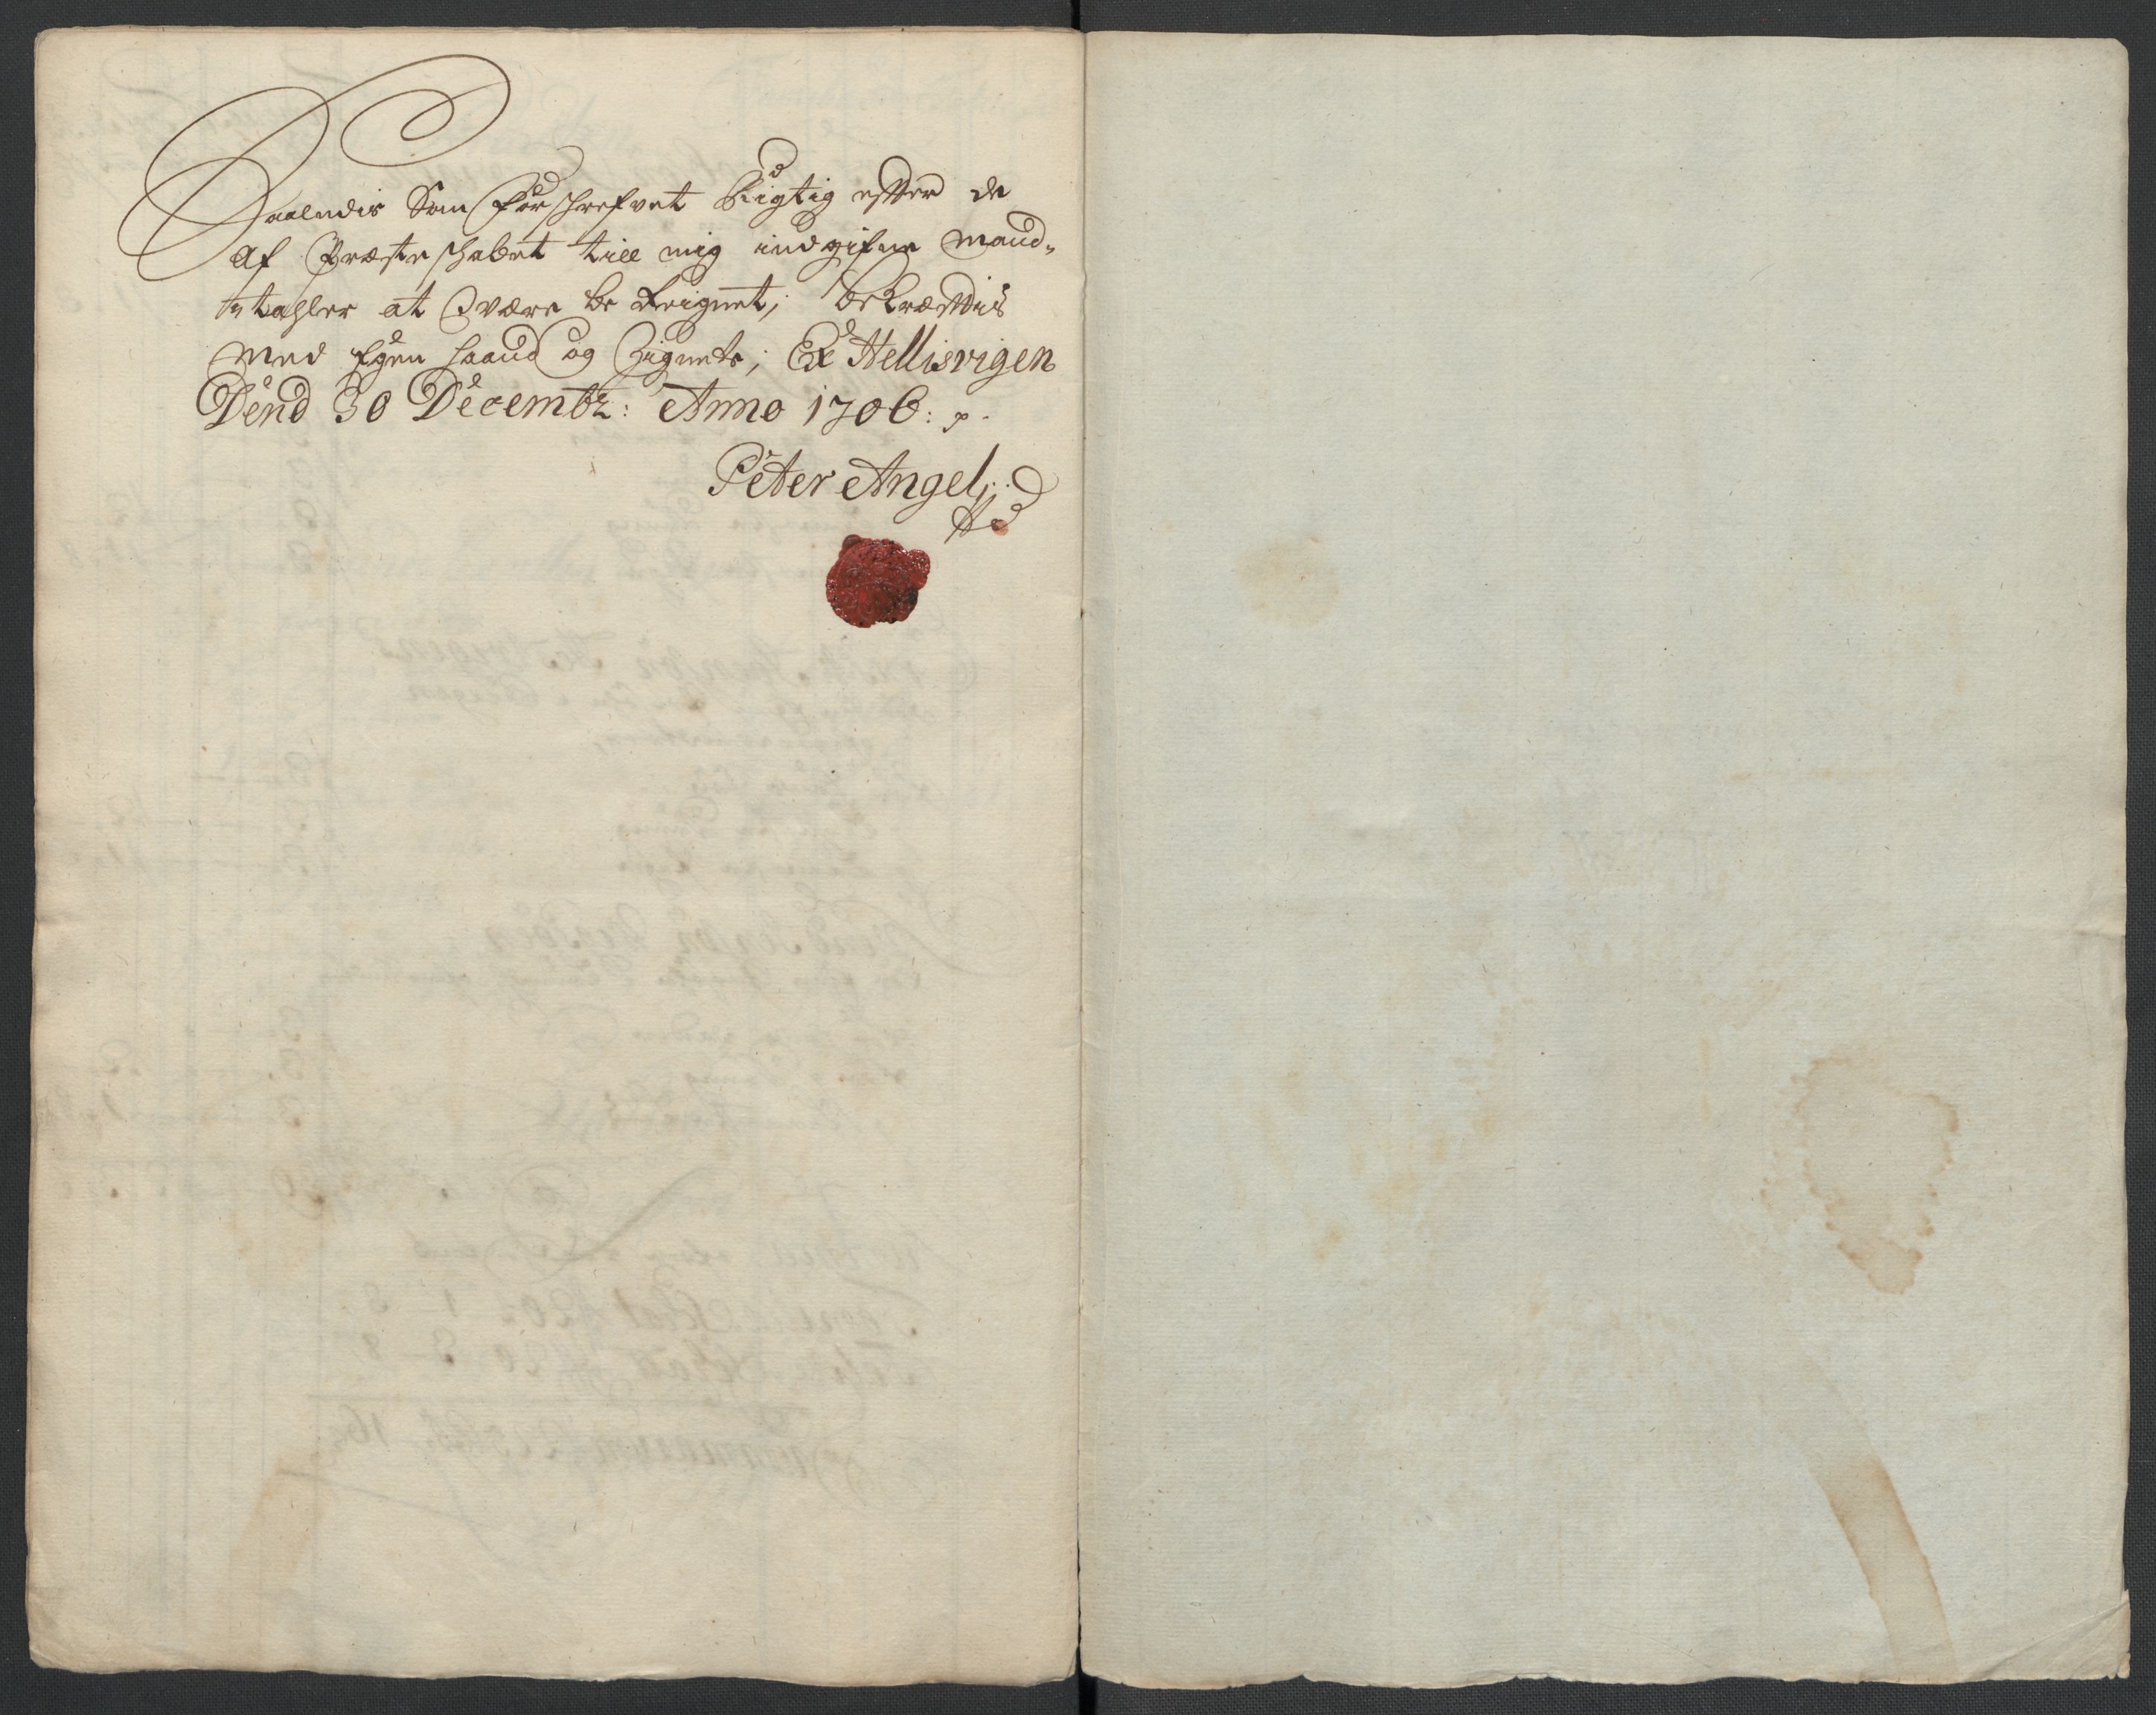 Saaledis Som Forschrefvet Rigtig efter de
af Præsteschabet till mig indgifne Mand-
tahler at være be Reignet; bekræftis
Med Egen haand og Zignete; Ex Hellisvigen
Dend 30 Decembr: Anno 1706: p.
Peter Angel;